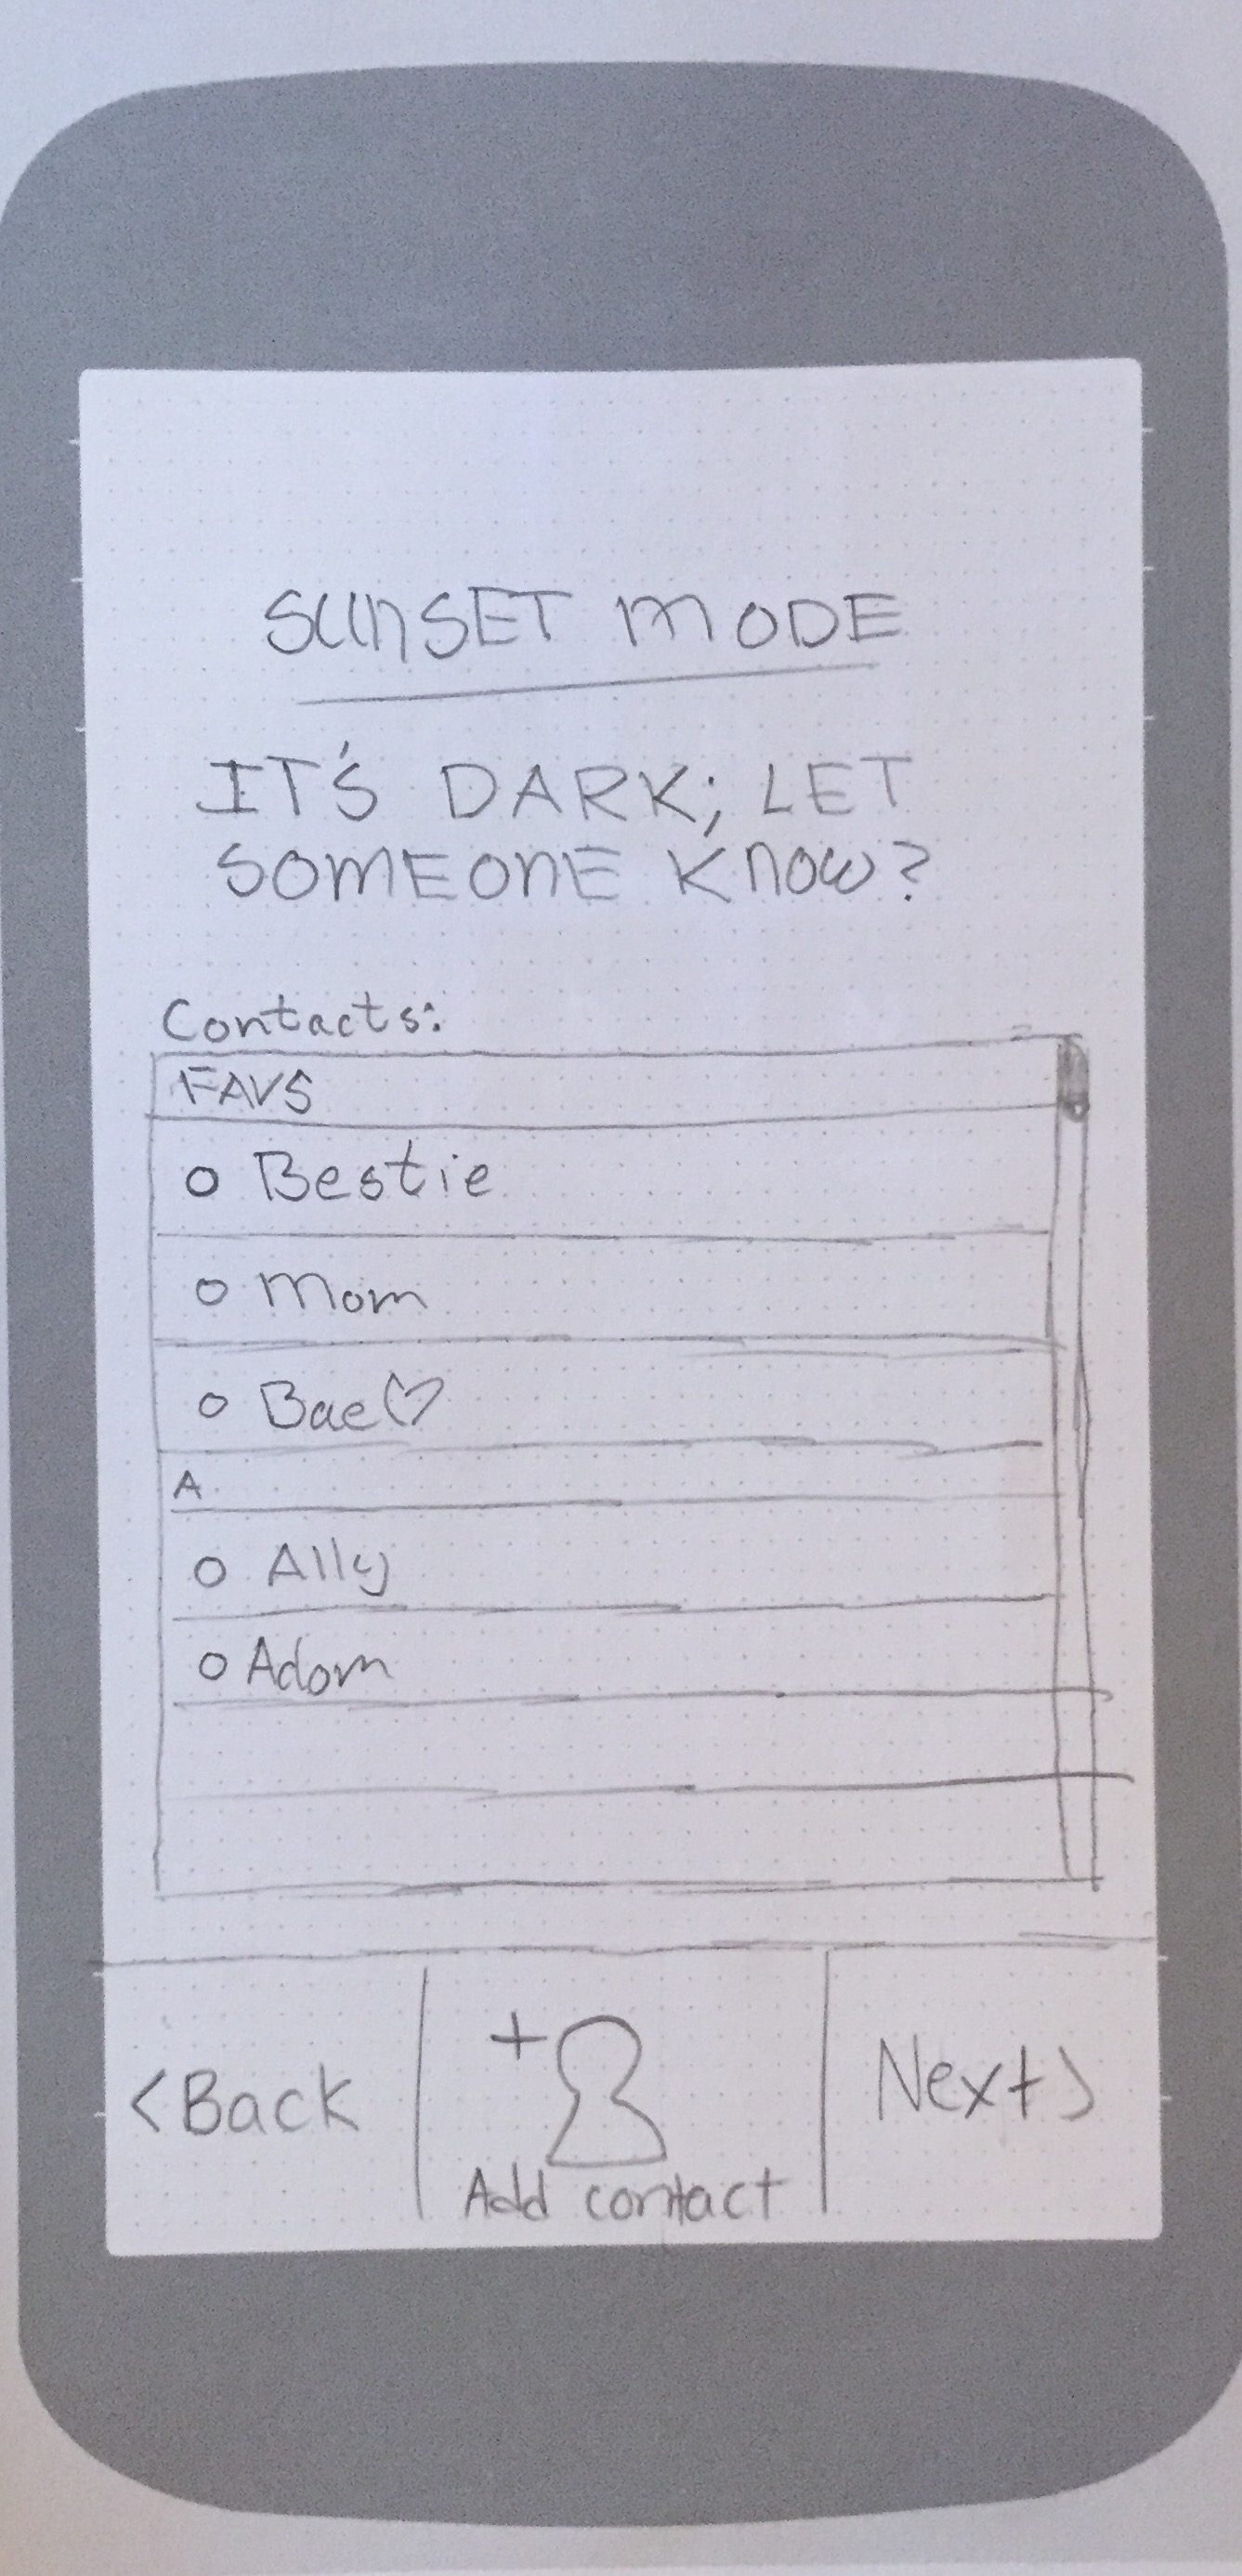 SUNSET MODE
IT'S DARK; LET
SOMEONE KNOW?
Contacts:
FAVS
Bestie
Mom
Bae♡
A
Ally
Adam
<Back
+
Add contact
Next>